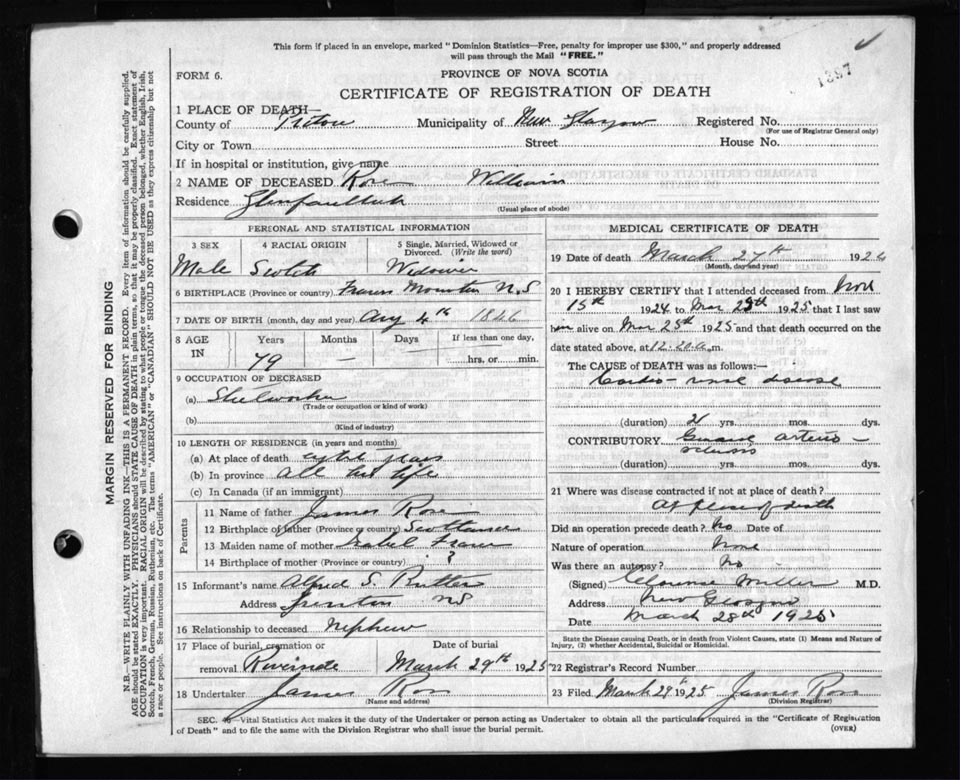 This form if placed in an envelope, marked "Dominion Statistics—Free, penalty for improper use $300," and properly addressed
will pass through the Mail "FREE."
1397
FORM 6.
PROVINCE OF NOVA SCOTIA
CERTIFICATE OF REGISTRATION OF DEATH
1 PLACE OF DEATH—
County of Pictou Municipality of New Glasgow Registered No.
(For use of Registrar General only)
City or Town Street House No.
If in hospital or institution, give name
2 NAME OF DECEASED Rose William
Residence
(Usual place of abode)
PERSONAL AND STATISTICAL INFORMATION
3 SEX 4 RACIAL ORIGIN 5 Single, Married, Widowed or Divorced. (Write the word)
Male Scotch Widower
6 BIRTHPLACE (Province or country) Frasers Mountain N.S
7 DATE OF BIRTH (month, day and year) Aug 4th 1846
8 AGE IN Years Months Days If less than one day,
79 — — hrs. or min.
9 OCCUPATION OF DECEASED
(a) Steelworker
(Trade or occupation or kind of work)
(b)
(Kind of industry)
10 LENGTH OF RESIDENCE (in years and months)
(a) At place of death years
(b) In province all his life
(c) In Canada (if an immigrant)
Parents
11 Name of father James Rose
12 Birthplace of father (Province or country) Scotland
13 Maiden name of mother Isabel Fraser
14 Birthplace of mother (Province or country) ?
15 Informant's name Alfred S. Butler
Address Trenton NS
16 Relationship to deceased Nephew
17 Place of burial, cremation or Date of burial
removal Riverside March 29th 1925
18 Undertaker James Ross
(Name and address)
MEDICAL CERTIFICATE OF DEATH
19 Date of death March 27th 192
(Month, day and year)
20 I HEREBY CERTIFY that I attended deceased from Nov
15th 1924 to Mar 25th 1925 that I last saw
him alive on Mar 25th 1925 and that death occurred on the
date stated above, at 12.20 a. m.
The CAUSE of DEATH was as follows:—
Cardio-renal disease
(duration) 2 yrs. mos. dys.
CONTRIBUTORY General arterio-
sclerosis
(duration) yrs. mos. dys.
21 Where was disease contracted if not at place of death?
At place of death
Did an operation precede death? No Date of
Nature of operation None
Was there an autopsy? No
(Signed) Clarence Miller M.D.
Address New Glasgow
Date March 28th 1925
State the Disease causing Death, or in death from Violent Causes, state (1) Means and Nature of
Injury, (2) whether Accidental, Suicidal or Homicidal.
22 Registrar's Record Number
23 Filed March 29th 1925 James Ross
(Division Registrar)
SEC. —Vital Statistics Act makes it the duty of the Undertaker or person acting as Undertaker to obtain all the particulars required in the "Certificate of Registration
of Death" and to file the same with the Division Registrar who shall issue the burial permit. (OVER)
MARGIN RESERVED FOR BINDING
N.B.—WRITE PLAINLY WITH UNFADING INK—THIS IS A PERMANENT RECORD. Every item of information should be carefully supplied.
AGE should be stated EXACTLY. PHYSICIANS should STATE CAUSE OF DEATH in plain terms, so that it may be properly classified. Exact statement of
OCCUPATION is very important. RACIAL ORIGIN will be described by stating to what people or tongue the deceased person belonged, whether English, Irish,
Scotch, French, German, Russian, Ruthenian, etc. The terms "AMERICAN" or "CANADIAN" SHOULD NOT BE USED as they express citizenship but not
a race or people. See instructions on back of Certificate.